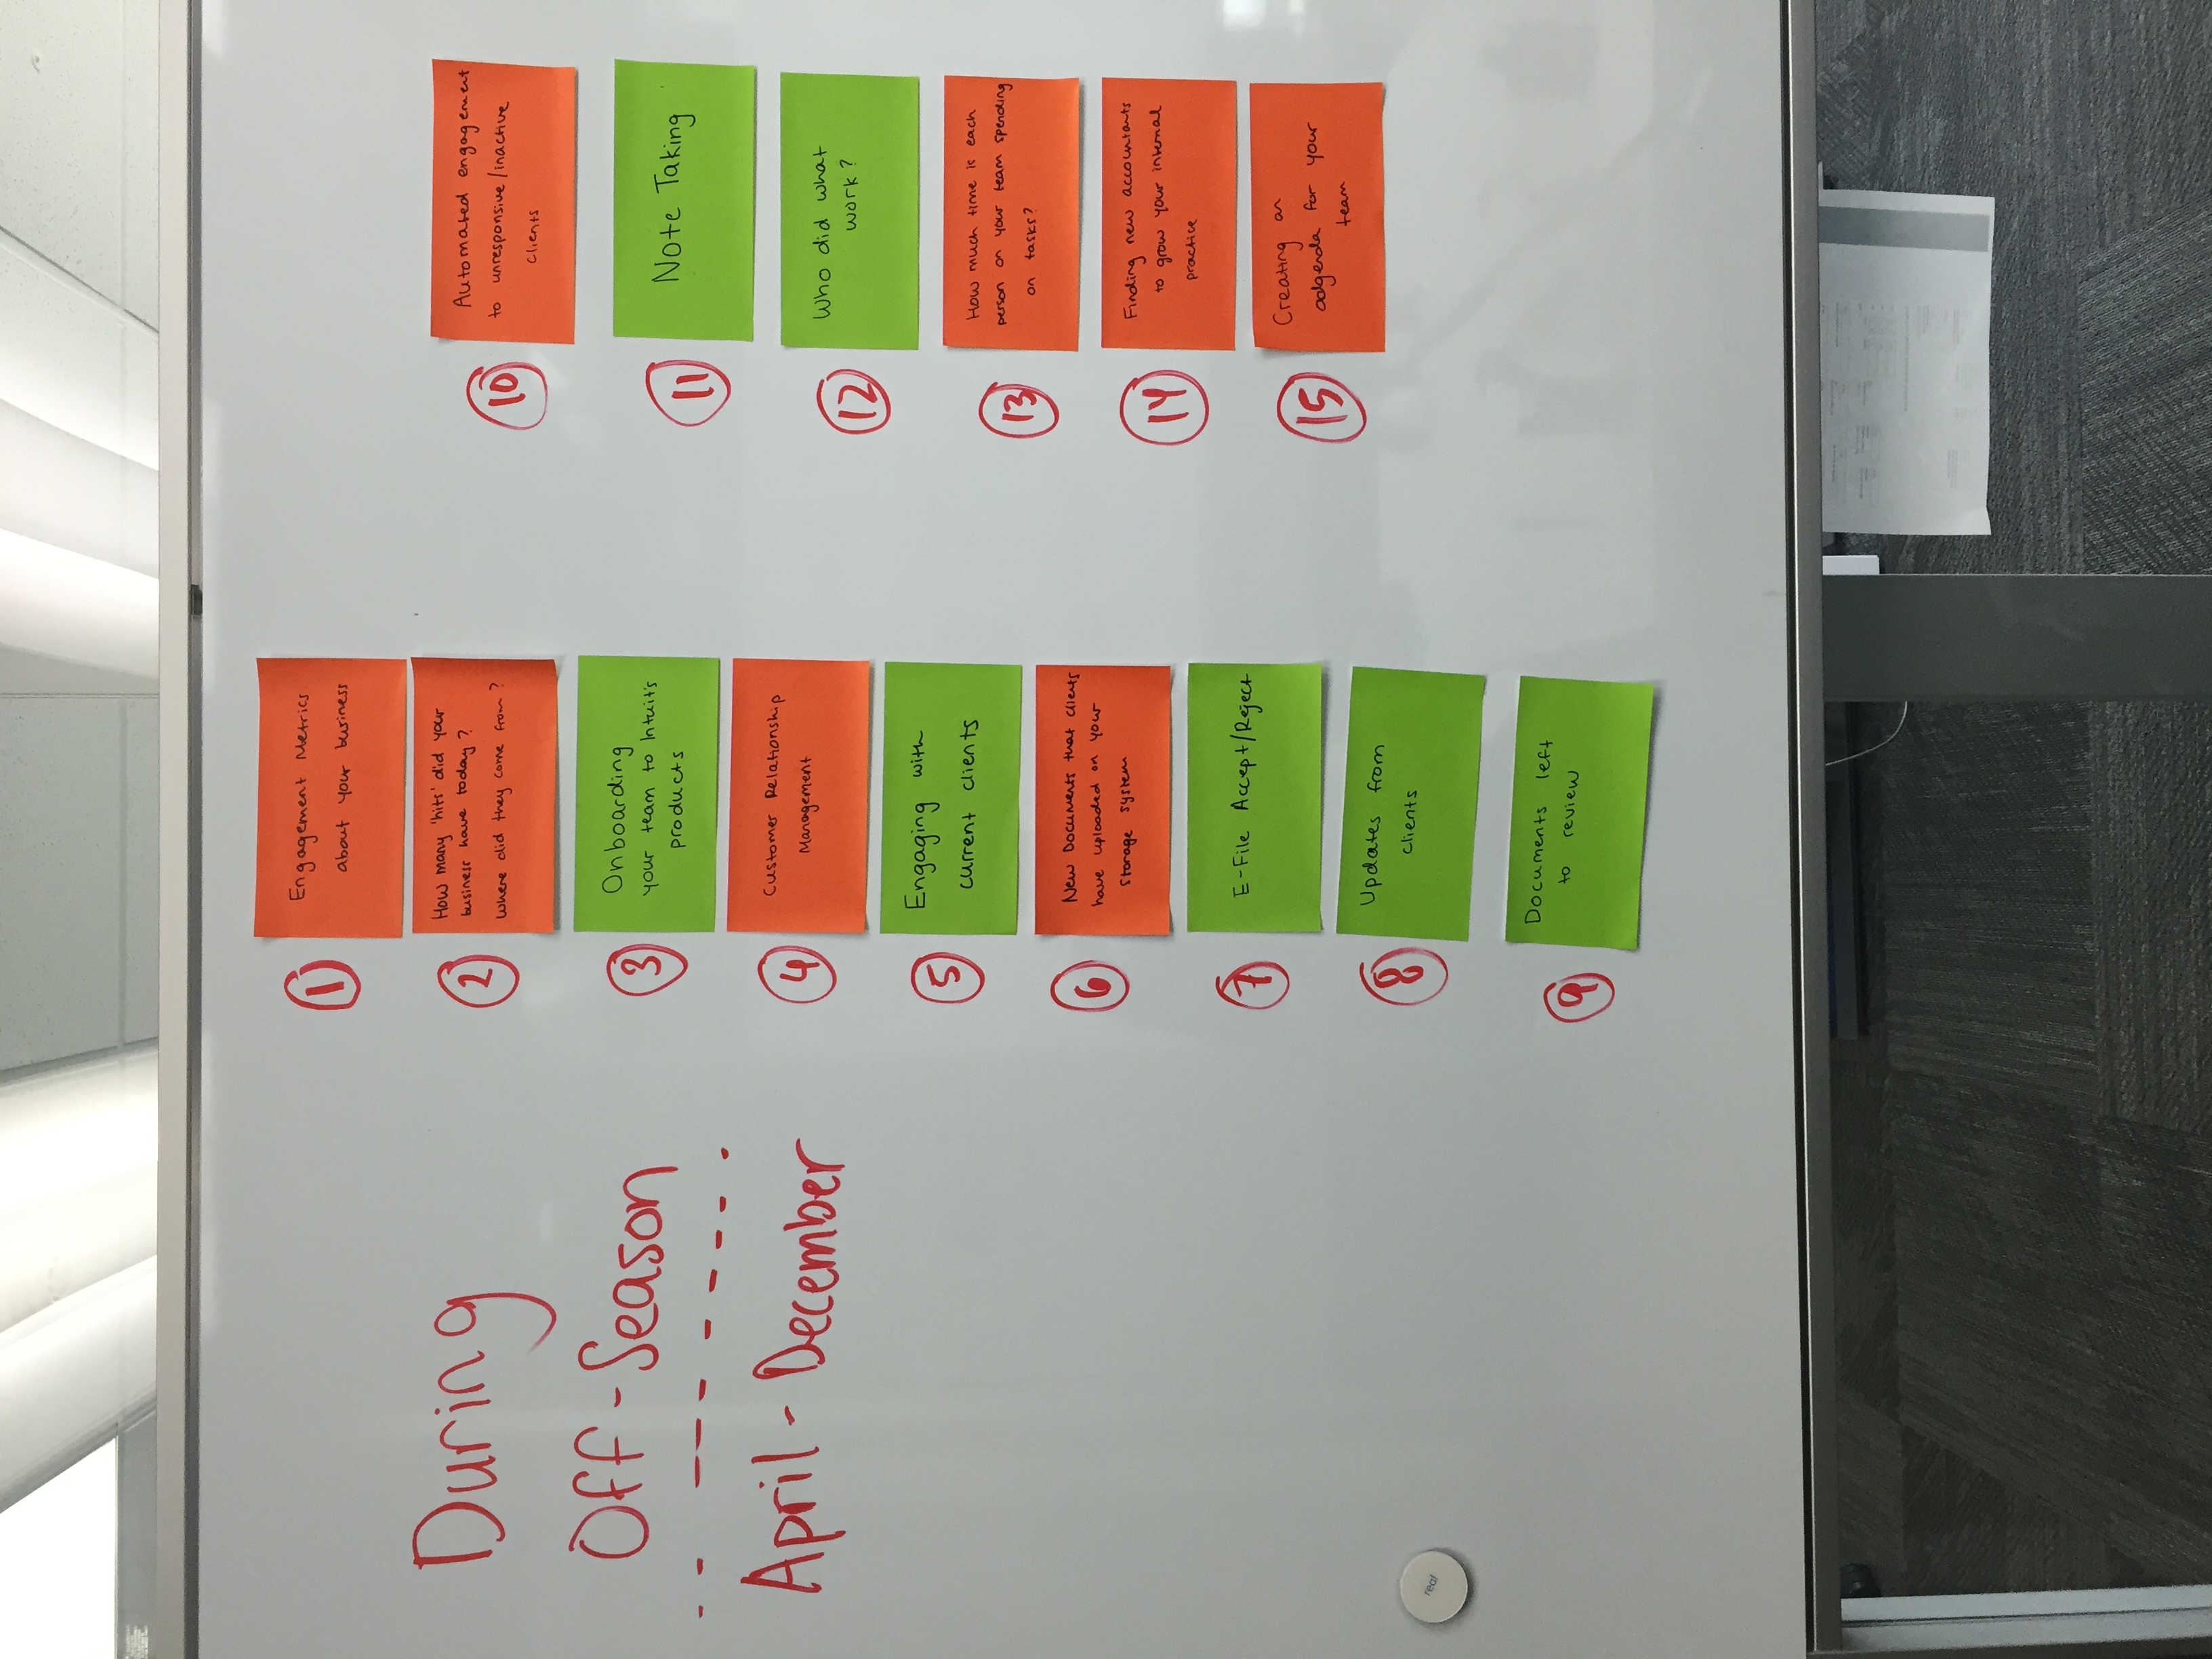 During
Off-Season
April - December
1
Engagement Metrics
about your business
2
How many 'hits' did your
business have today?
Where did they come from?
3
Onboarding
your team to Intuit's
products
4
Customer Relationship
Management
5
Engaging with
current clients
6
New Documents that clients
have uploaded on your
storage system
7
E-File Accept/Reject
8
Updates from
clients
9
Documents left
to review
10
Automated engagement
to unresponsive/inactive
clients
11
Note Taking
12
Who did what
work?
13
How much time is each
person on your team spending
on tasks?
14
Finding new accountants
to grow your internal
practice
15
Creating an
adgenda for your
team
real